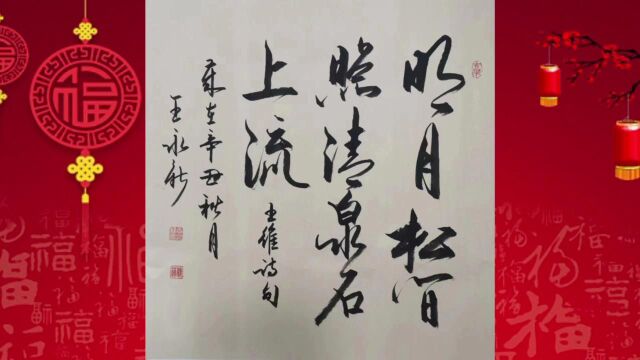 明月松间
照清泉石
上流
王维诗句
岁在辛丑秋月
王永
福